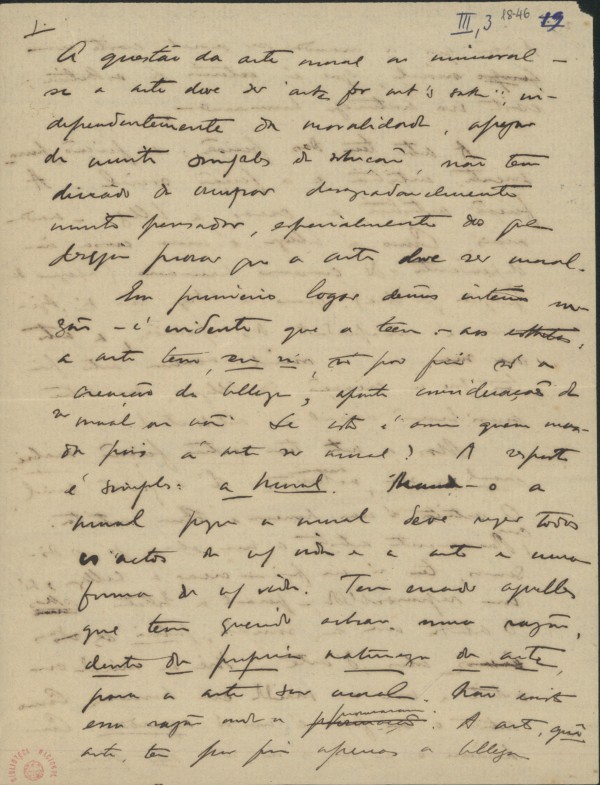 III, 3 18-46 19
1.
A questão da arte moral ou immoral —
se a arte deve ser "art for art's sake", in-
dependentemente da moralidade, apezar
de muito simples de solução, não tem
deixado de occupar desagradavelmente
muito pensador, especialmente dos que
desejam provar que a arte deve ser moral.
Em primeiro logar demos inteira ra-
zão — é evidente que a teem — aos esthetas;
a arte tem, em si, só por fim só a
creação da belleza, àparte considerações de
moral ou não. Se isto é assim quem man-
da pois á arte ser moral? A resposta
é simples: a moral. Manda-o a
moral porque a moral deve reger todos
os actos da vida e a arte é uma
forma da vida. Tem errado aquelles
que tem querido achar uma razão,
dentro da propria natureza da arte,
para a arte ser moral. Não existe
essa razão onde a procuraram. A arte, quâ
arte, tem por fim apenas a belleza
BIBLIOTECA NACIONAL